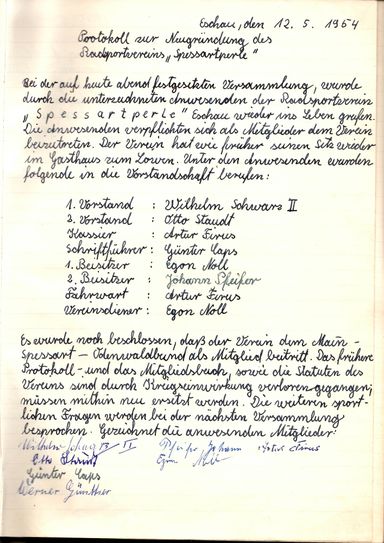 Eschau, den 12. 5. 1954
Protokoll zur Neugründung des
Radsportvereins „Spessartperle“
Bei der auf heute abend festgesetzten Versammlung, wurde
durch die unterzeichneten Anwesenden der Radsportverein
„Spessartperle“ Eschau wieder ins Leben grufen.
Die Anwesenden verpflichten sich als Mitglieder dem Verein
beizutreten. Der Verein hat wie früher seinen Sitz wieder
im Gasthaus zum Löwen. Unter den Anwesenden wurden
folgende in die Vorstandschaft berufen:
1. Vorstand : Wilhelm Schwarz II
2. Vorstand : Otto Staudt
Kassier : Artur Firus
Schriftführer : Günter Caps
1. Beisitzer : Egon Noll
2. Beisitzer : Johann Pfeifer
Fahrwart : Artur Firus
Vereinsdiener : Egon Noll
Es wurde noch beschlossen, daß der Verein dem Main-
Spessart-Odenwaldbund als Mitglied beitritt. Das frühere
Protokoll- und das Mitgliedsbuch, sowie die Statuten des
Vereins sind durch Kriegseinwirkung verloren gegangen,
müssen mithin neu ersetzt werden. Die weiteren sport-
lichen Fragen werden bei der nächsten Versammlung
besprochen. Gezeichnet die anwesenden Mitglieder:
Wilhelm II Pfeifer Johann Artur Firus
Otto Staudt Egon Noll
Günter Caps
Werner Günther